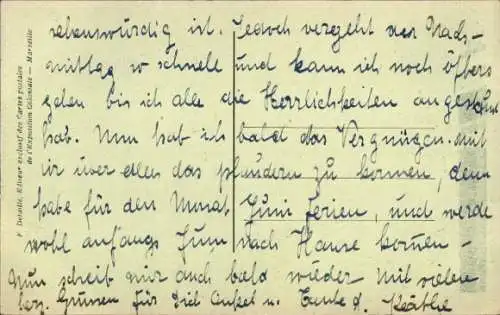 sehenswürdig ist. Jedoch vergeht der Nach-
mittag so schnell und kann ich noch öfters
gehen bis ich alle die Herrlichkeiten angeschaut
hab. Nun hab ich bald das Vergnügen mit
dir über alles das plaudern zu können, denn
habe für den Monat Juni Ferien, und werde
wohl anfangs Juni nach Hause kommen -
Nun schreib mir auch bald wieder Mit vielen
herz. Grüssen für Dich Onkel u. Tante d. Käthe
F. Detaille, Editeur exclusif des Cartes postales
de l'Exposition Coloniale — Marseille